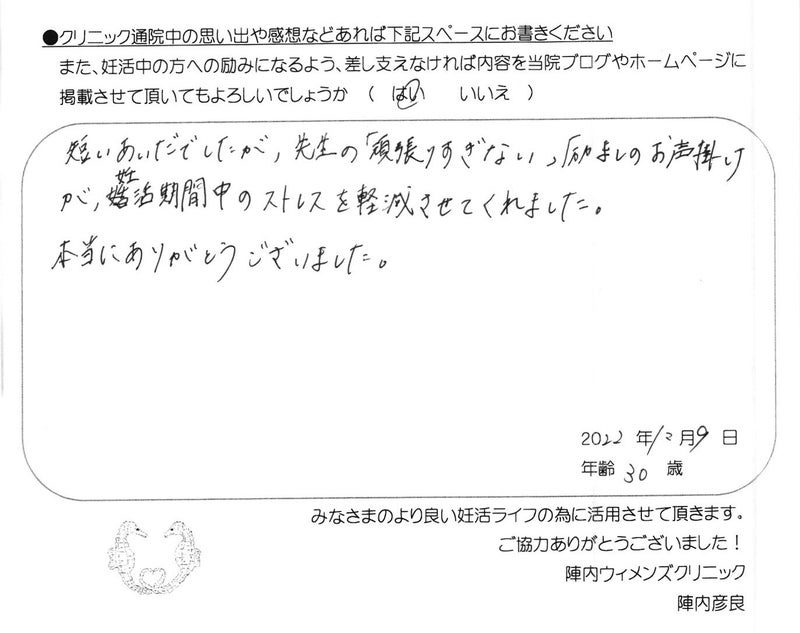 ●クリニック通院中の思い出や感想などあれば下記スペースにお書きください
また、妊活中の方への励みになるよう、差し支えなければ内容を当院ブログやホームページに
掲載させて頂いてもよろしいでしょうか （ はい いいえ ）
短いあいだでしたが，先生の「頑張りすぎない」励ましのお声掛け
が，妊活期間中のストレスを軽減させてくれました。
本当にありがとうございました。
2022 年 12月 9 日
年齢 30 歳
みなさまのより良い妊活ライフの為に活用させて頂きます。
ご協力ありがとうございました！
陣内ウィメンズクリニック
陣内彦良